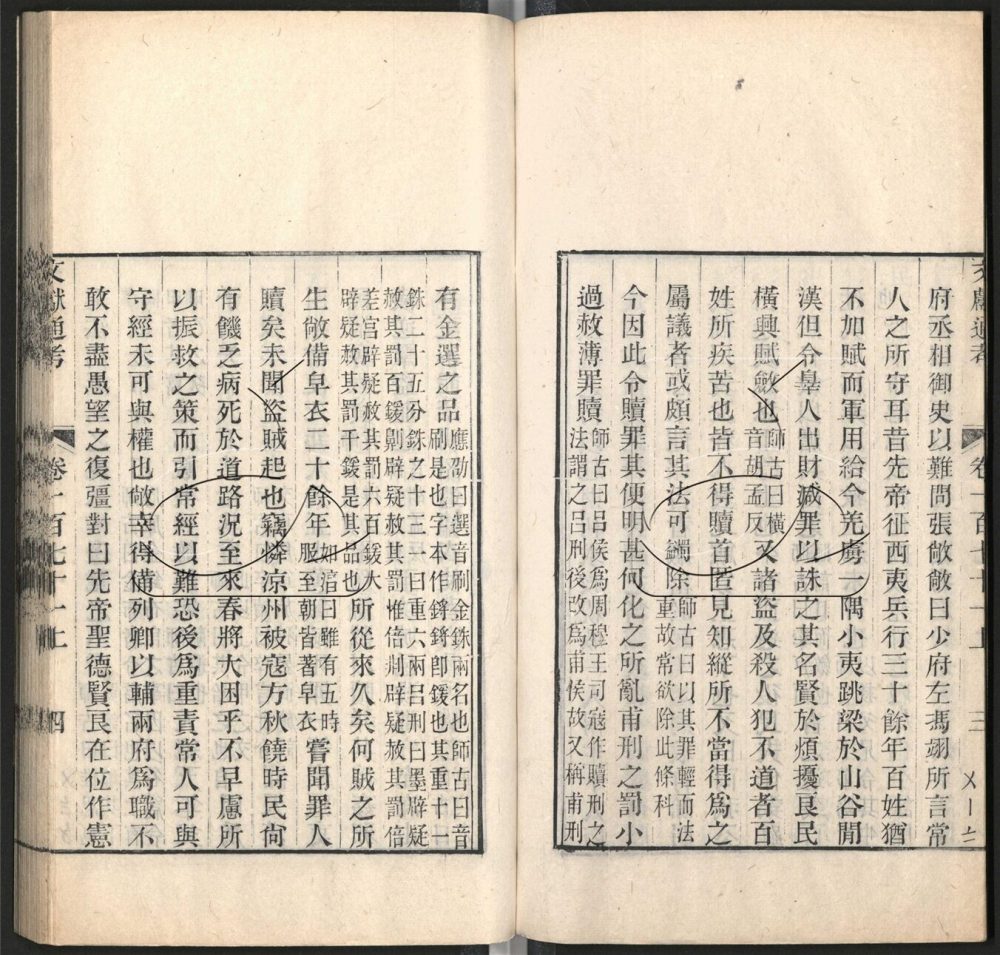 府丞相御史以難問張敞敞曰少府左馮翊所言常
人之所守耳昔先帝征西夷兵行三十餘年百姓猶
不加賦而軍用給今羌虜一隅小夷跳梁於山谷閒
漢但令辠人出財減罪以誅之其名賢於煩擾良民
橫興賦斂也師古曰橫音胡孟反又諸盜及殺人犯不道者百
姓所疾苦也皆不得贖首匿見知縱所不當得為之
屬議者或頗言其法可蠲除師古曰以其罪輕而法重故常欲除此條科
今因此令贖罪其便明甚何化之所亂甫刑之罰小
過赦薄罪贖師古曰呂侯為周穆王司寇作贖刑之法謂之呂刑後改為甫侯故又稱甫刑
文獻通考 卷一百七十一上 三
有金選之品應劭曰選音刷金銖兩名也師古曰音刷是也字本作鋝鋝即鍰也其重十一
銖二十五分銖之十三一曰重六兩呂刑曰墨辟疑赦其罰百鍰劓辟疑赦其罰惟倍剕辟疑赦其罰倍
差宫辟疑赦其罰六百鍰大辟疑赦其罰千鍰是其品也所從來久矣何賊之所
生敞備皁衣二十餘年如淳曰雖有五時服至朝皆著皁衣嘗聞罪人
贖矣未聞盜賊起也竊憐涼州被寇方秋饒時民尙
有饑乏病死於道路況至來春將大困乎不早慮所
以振救之策而引常經以難恐後為重責常人可與
守經未可與權也敞幸得備列卿以輔兩府為職不
敢不盡愚望之復彊對曰先帝聖德賢良在位作憲
文獻通考 卷一百七十一上 四